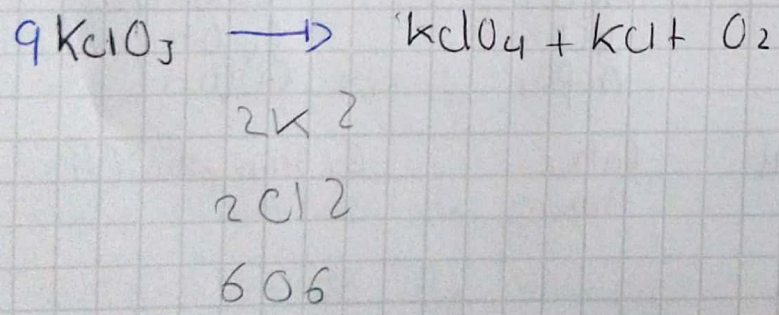 9 KClO3 → KClO4 + KCl + O2
2 K 2
2 Cl 2
6 O 6